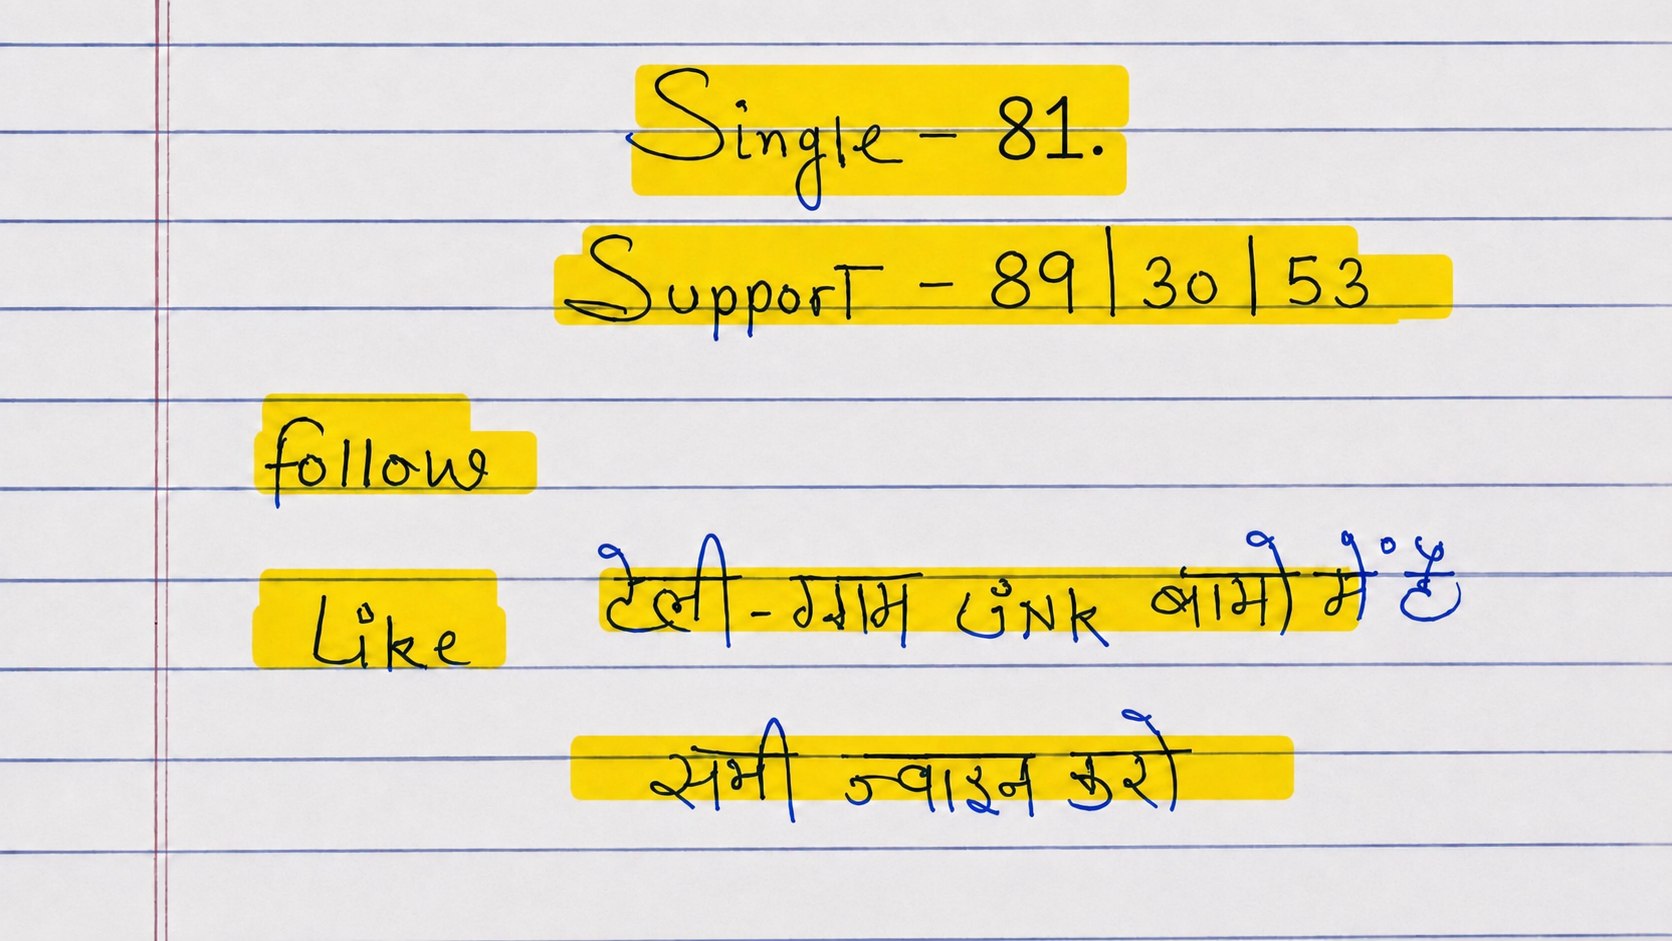 Single - 81.
Support - 89 | 30 | 53
follow
Like
टेली-ग्राम LiNK बायो में है
सभी ज्वाइन करो